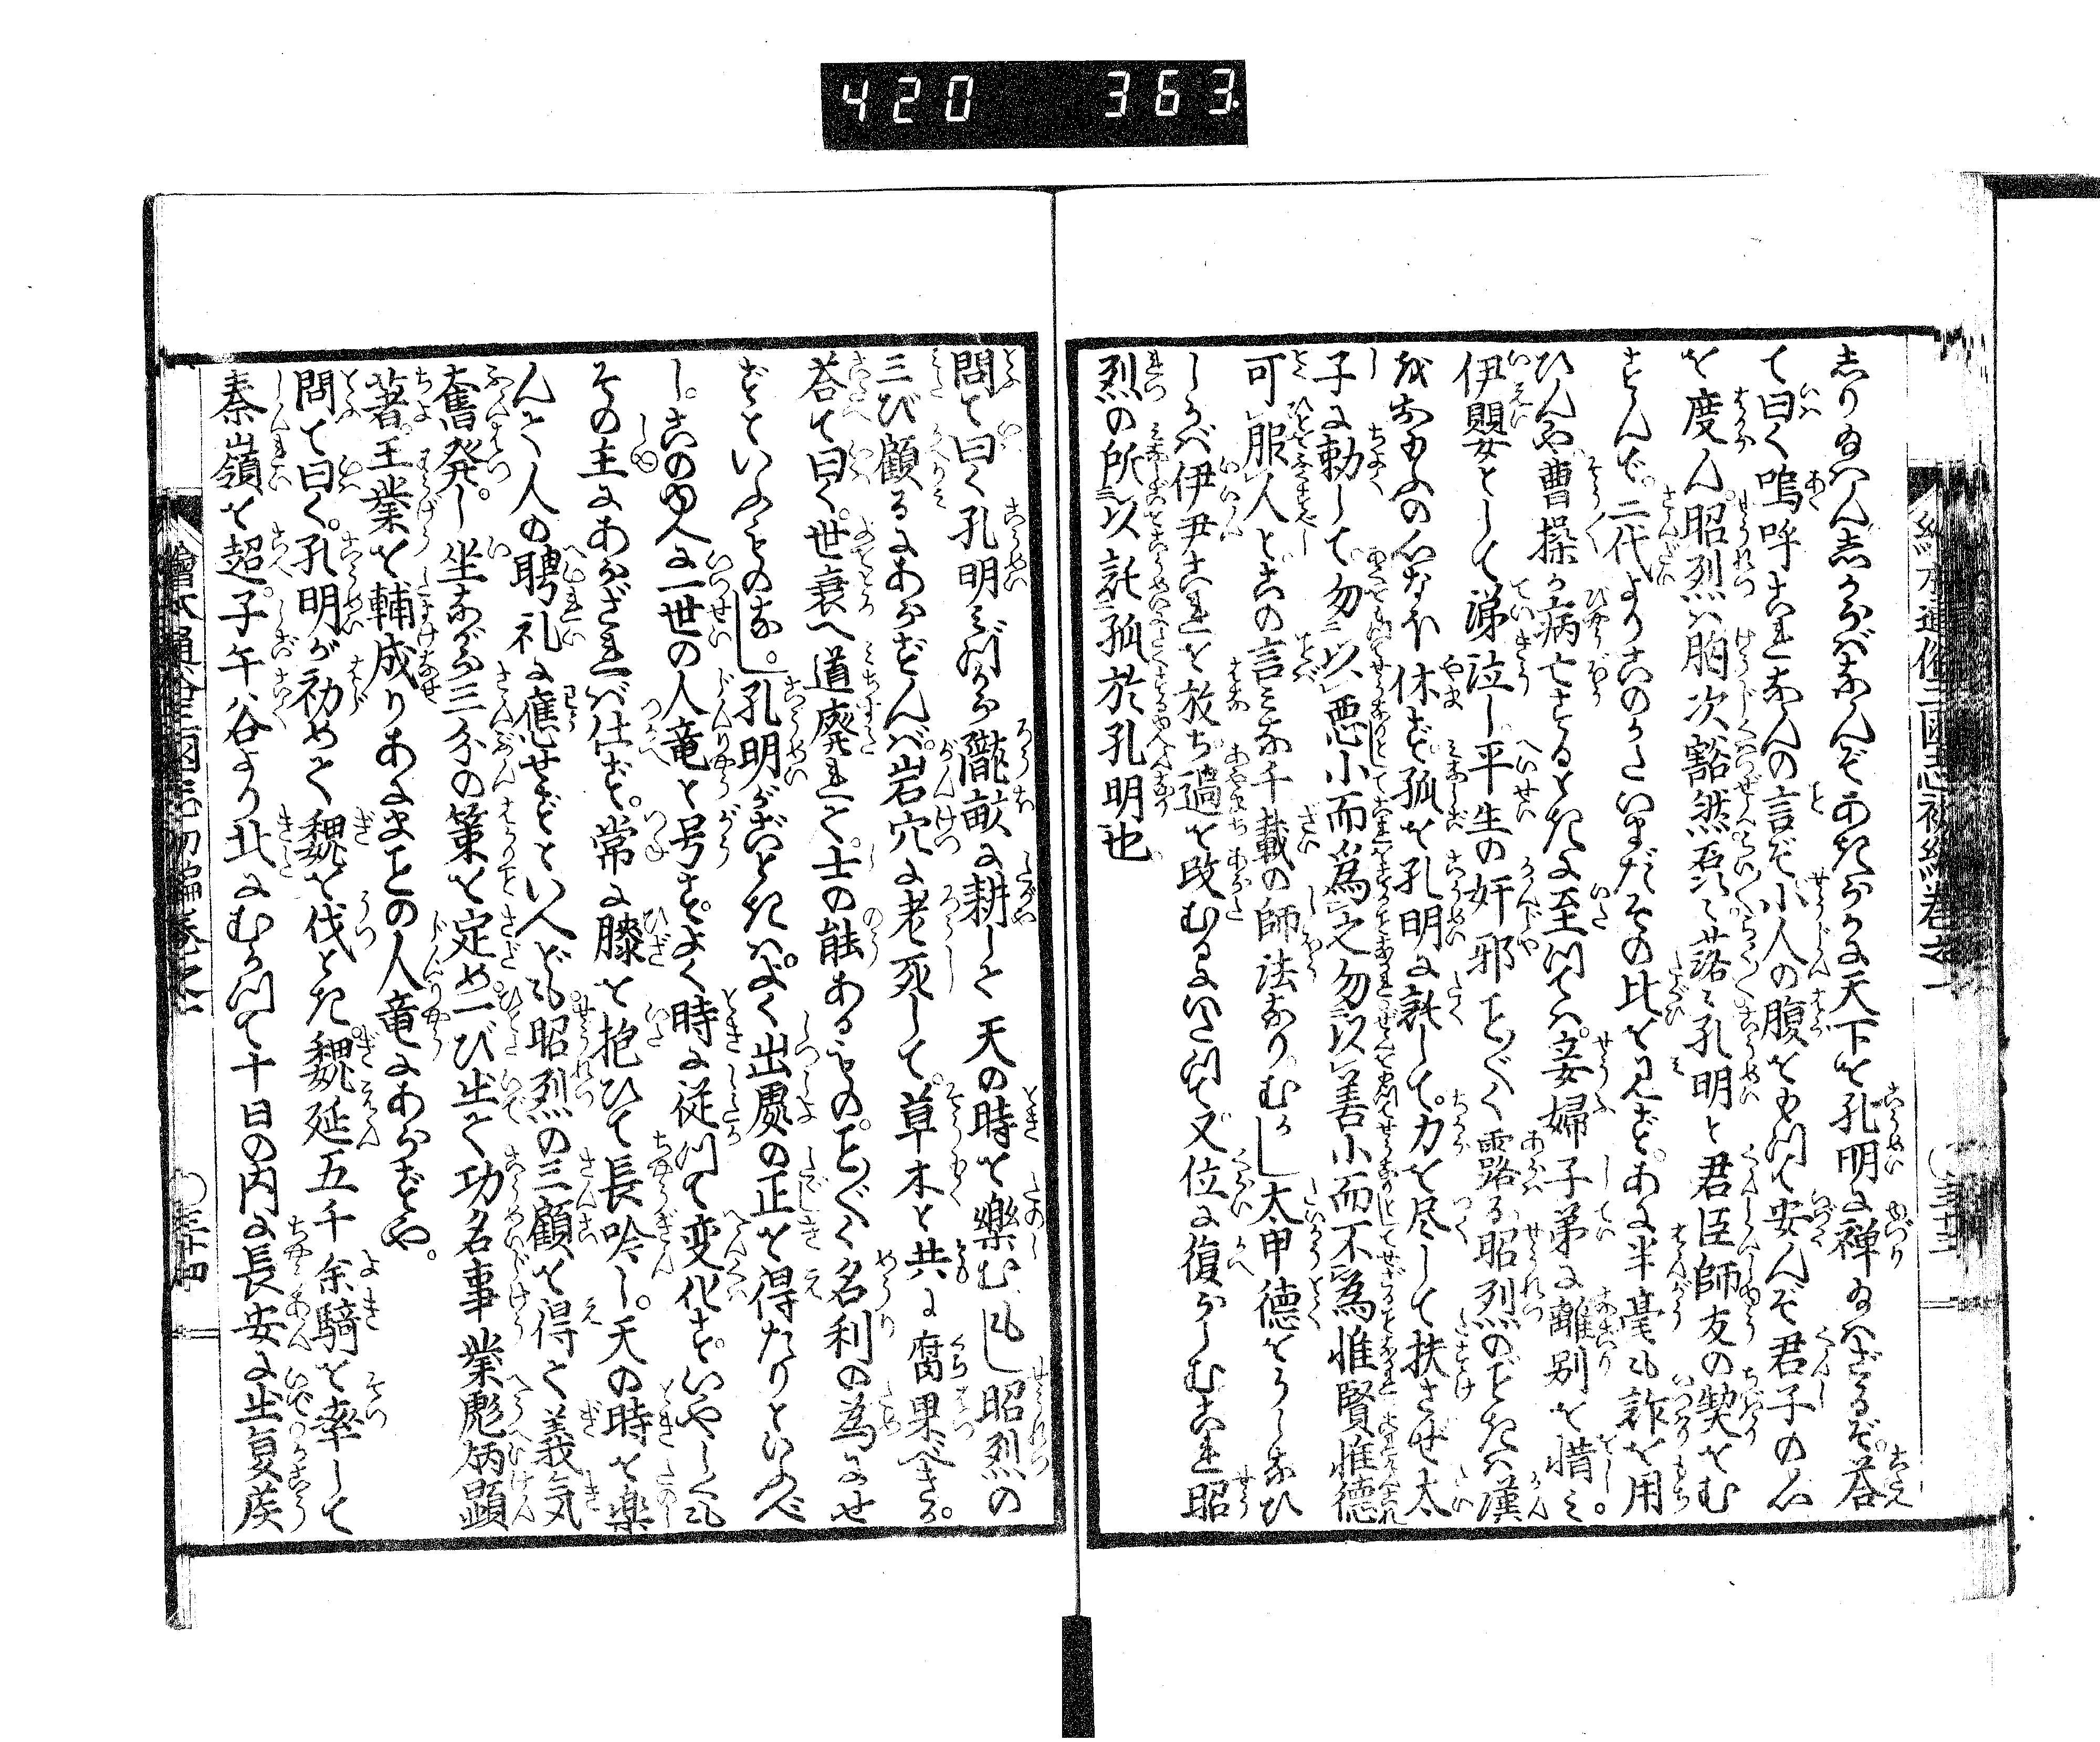 420 363.
繪本通俗三國志初編卷之一
三十三
志り給はんしからばなんぞあきらかに天下を孔明に禅り給はざるぞ。荅
て曰く嗚呼これなんの言ぞ小人の腹をもつて安んぞ君子の心
を度ん。昭烈は胸次豁然磊々落々孔明と君臣師友の契をむ
すんで。三代よりこのかたいまだその比を見ず。あに半毫も詐を用
ひんや。曹操が病亡するときに至つては。妾婦子弟に離別を惜み。
伊嬰として涕泣し。平生の奸邪ことごとく露る昭烈のごときは漢
をおもふの心なほ休ず孤を孔明に託して。力を尽して扶さぜ太
子に勅して。勿以悪小而為之勿以善小而不為惟賢惟徳
可服人とこの言みな千載の師法なり。むかし太甲徳をうしなひ
しかば伊尹これを放ち過を改むるにいたつて又位に復らしむこれ昭
烈の所以託孤於孔明也
問て曰く孔明みづから隴畝に耕して天の時を樂むもし昭烈の
三び顧るにあらずんば。岩穴に老死して。草木と共に腐果べきか。
荅て曰く。世衰へ道廃れて。士の能あるもの。ことごとく名利の為にせ
ずといふものなし。孔明がごときは。よく出處の正を得たりといふべ
し。このゆ人に一世の人竜と号す。よく時に従つて変化す。いやしくも
その主にあらざれば仕ず。常に膝を抱ひて長吟し。天の時を樂
んで人の聘礼に應ぜずといへども。昭烈の三顧を得て義気
奮発し坐ながら三分の策を定め一び出て功名事業彪炳顕
著王業を輔成りあにまことの人竜にあらずや。
問て曰く。孔明が初めて魏を伐とき。魏延五千余騎を率して
秦嶺を超。子午谷より北にむかつて十日の内に長安に出夏侯
繪本通俗三國志初編卷之一
三十四